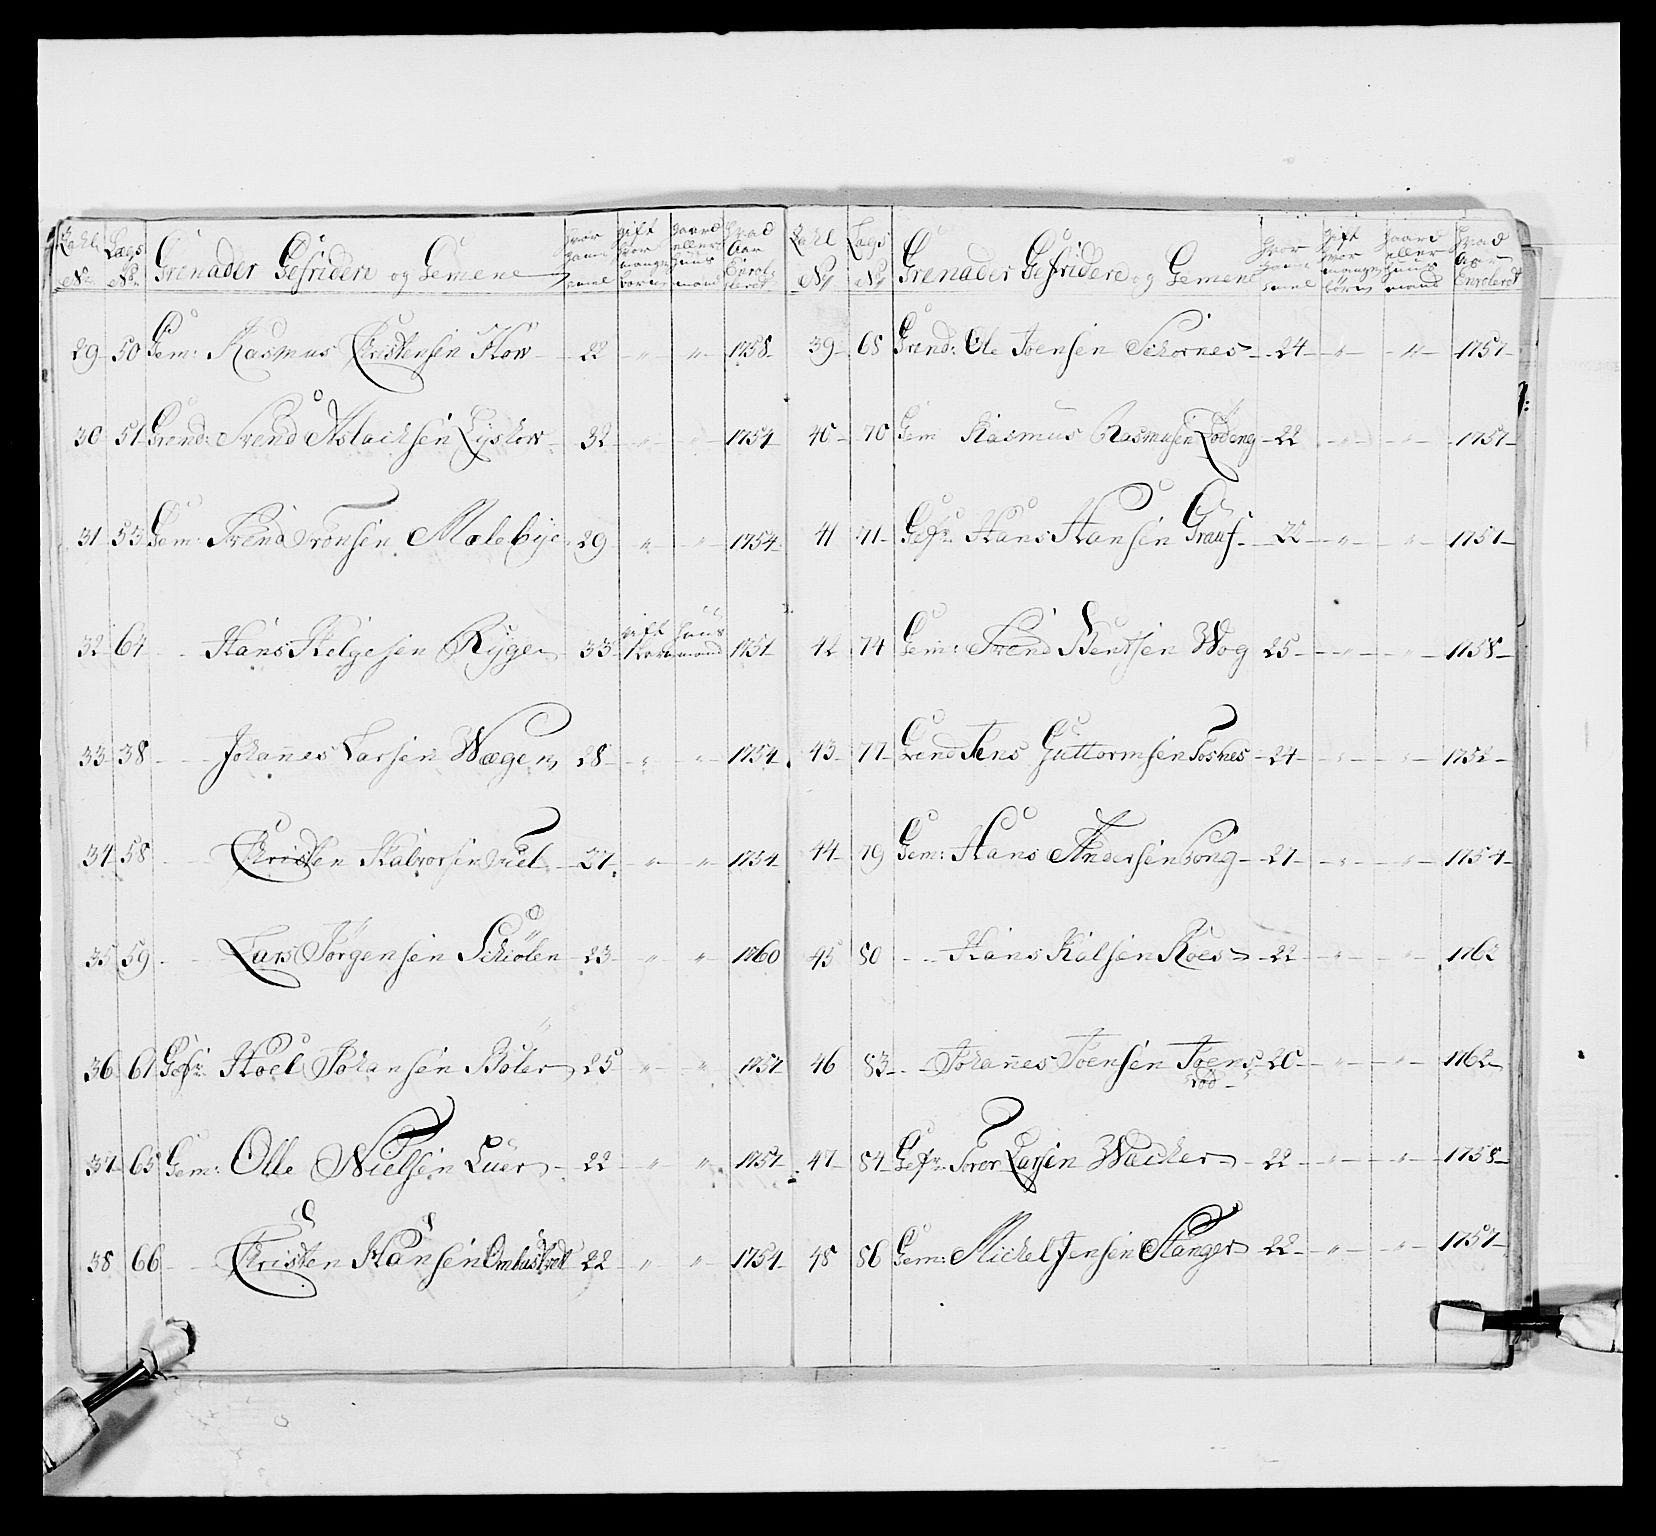 Tahl No Lægs No Grenader Gefridere og Gemene hvor gaml gift hvor mange börn gaard eller huus mand hvad Aar Enrolleret
29 50 Gem: Rasmus Christensen How 22 " " 1758
30 51 Grend: Svend Aslachsen Lyskow 32 " " 1754
31 53 Gem: Svend Tronsen Molebye 29 " " 1754
32 64 Hans Helgesen Rygen 33 gift huus mand 1751
33 38 Johanes Larsen Wægen 28 " " 1754
34 58 Christen Halvorsen 27 " " 1754
35 59 Lars Jörgensen Schiölen 23 " " 1760
36 61 Gefr: Hoel Johansen Böler 25 " " 1757
37 65 Gem: Olle Nielsen Luer 22 " " 1757
38 66 Christen Hansen 22 " " 1754
Tahl No Lægs No Grenader Gefridere og Gemene hvor gaml gift hvor mange börn gaard eller huus mand hvad Aar Enrolleret
39 68 Grend: Ole Joensen Schornes 24 " " 1757
40 70 Gem Rasmus Rasmusen Lödeng 22 " " 1757
41 71 Gefr: Hans Hansen Grauf 22 " " 1757
42 74 Gem: Svend Bentsen Wog 25 " " 1758
43 77 Grend Jens Guttormsen Fosnes 24 " " 1752
44 79 Gem: Hans Andersen Song 27 " " 1754
45 80 Hans Kalsen Roes 22 " " 1762
46 83 Johanes Joensen Joens 20 " " 1762
rod
47 84 Gefr: Iver Larsen Wacker 22 " " 1758
48 86 Gem: Michel Jensen Stanger 22 " " 1757